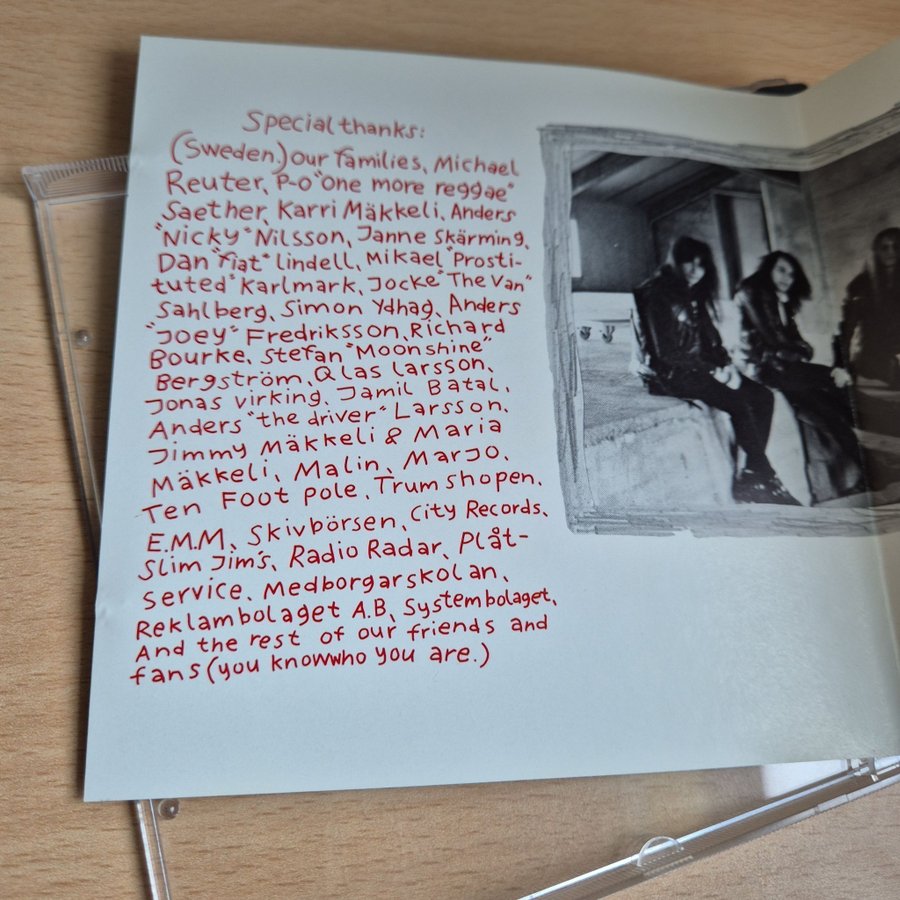 Special thanks:
(Sweden.) Our families, Michael
Reuter, P-o "One more reggae"
Saether, Karri Mäkkeli, Anders
"Nicky" Nilsson, Janne Skärming,
Dan "Fiat" lindell, Mikael "Prosti-
tuted" Karlmark, Jocke "The Van"
Sahlberg, Simon Ydhag, Anders
"Joey" Fredriksson, Richard
Bourke, Stefan "Moonshine"
Bergström, Qlas larsson,
Jonas virking, Jamil Batal,
Anders "the driver" Larsson,
Jimmy Mäkkeli & Maria
Mäkkeli, Malin, Marjo,
Ten Foot pole, Trumshopen,
E.M.M, Skivbörsen, City Records,
Slim Jim's, Radio Radar, Plåt-
service, Medborgarskolan,
Reklambolaget A.B, Systembolaget,
And the rest of our friends and
fans (you knowwho you are.)